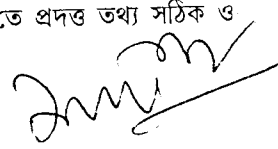 তে প্রদত্ত তথ্য সঠিক ও